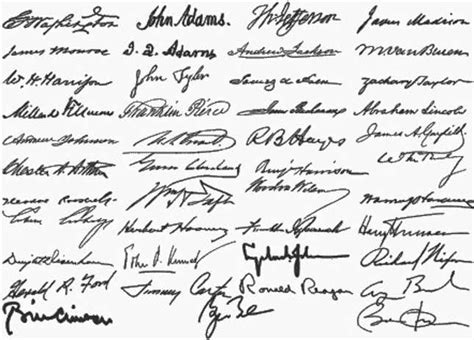 G Washington John Adams. Th Jefferson James Madison
James Monroe J. Q. Adams Andrew Jackson M Van Buren
W. H. Harrison John Tyler James K Polk Zachary Taylor
Millard Fillmore Franklin Pierce James Buchanan Abraham Lincoln
Andrew Johnson U. S. Grant R B Hayes James A. Garfield
Chester A. Arthur Grover Cleveland Benj Harrison
Wm H Taft Woodrow Wilson Warren G Harding
Herbert Hoover Harry Truman
Dwight D Eisenhower John F. Kennedy Lyndon B Johnson Richard Nixon
Gerald R. Ford Jimmy Carter Ronald Reagan G Bush
Bill Clinton